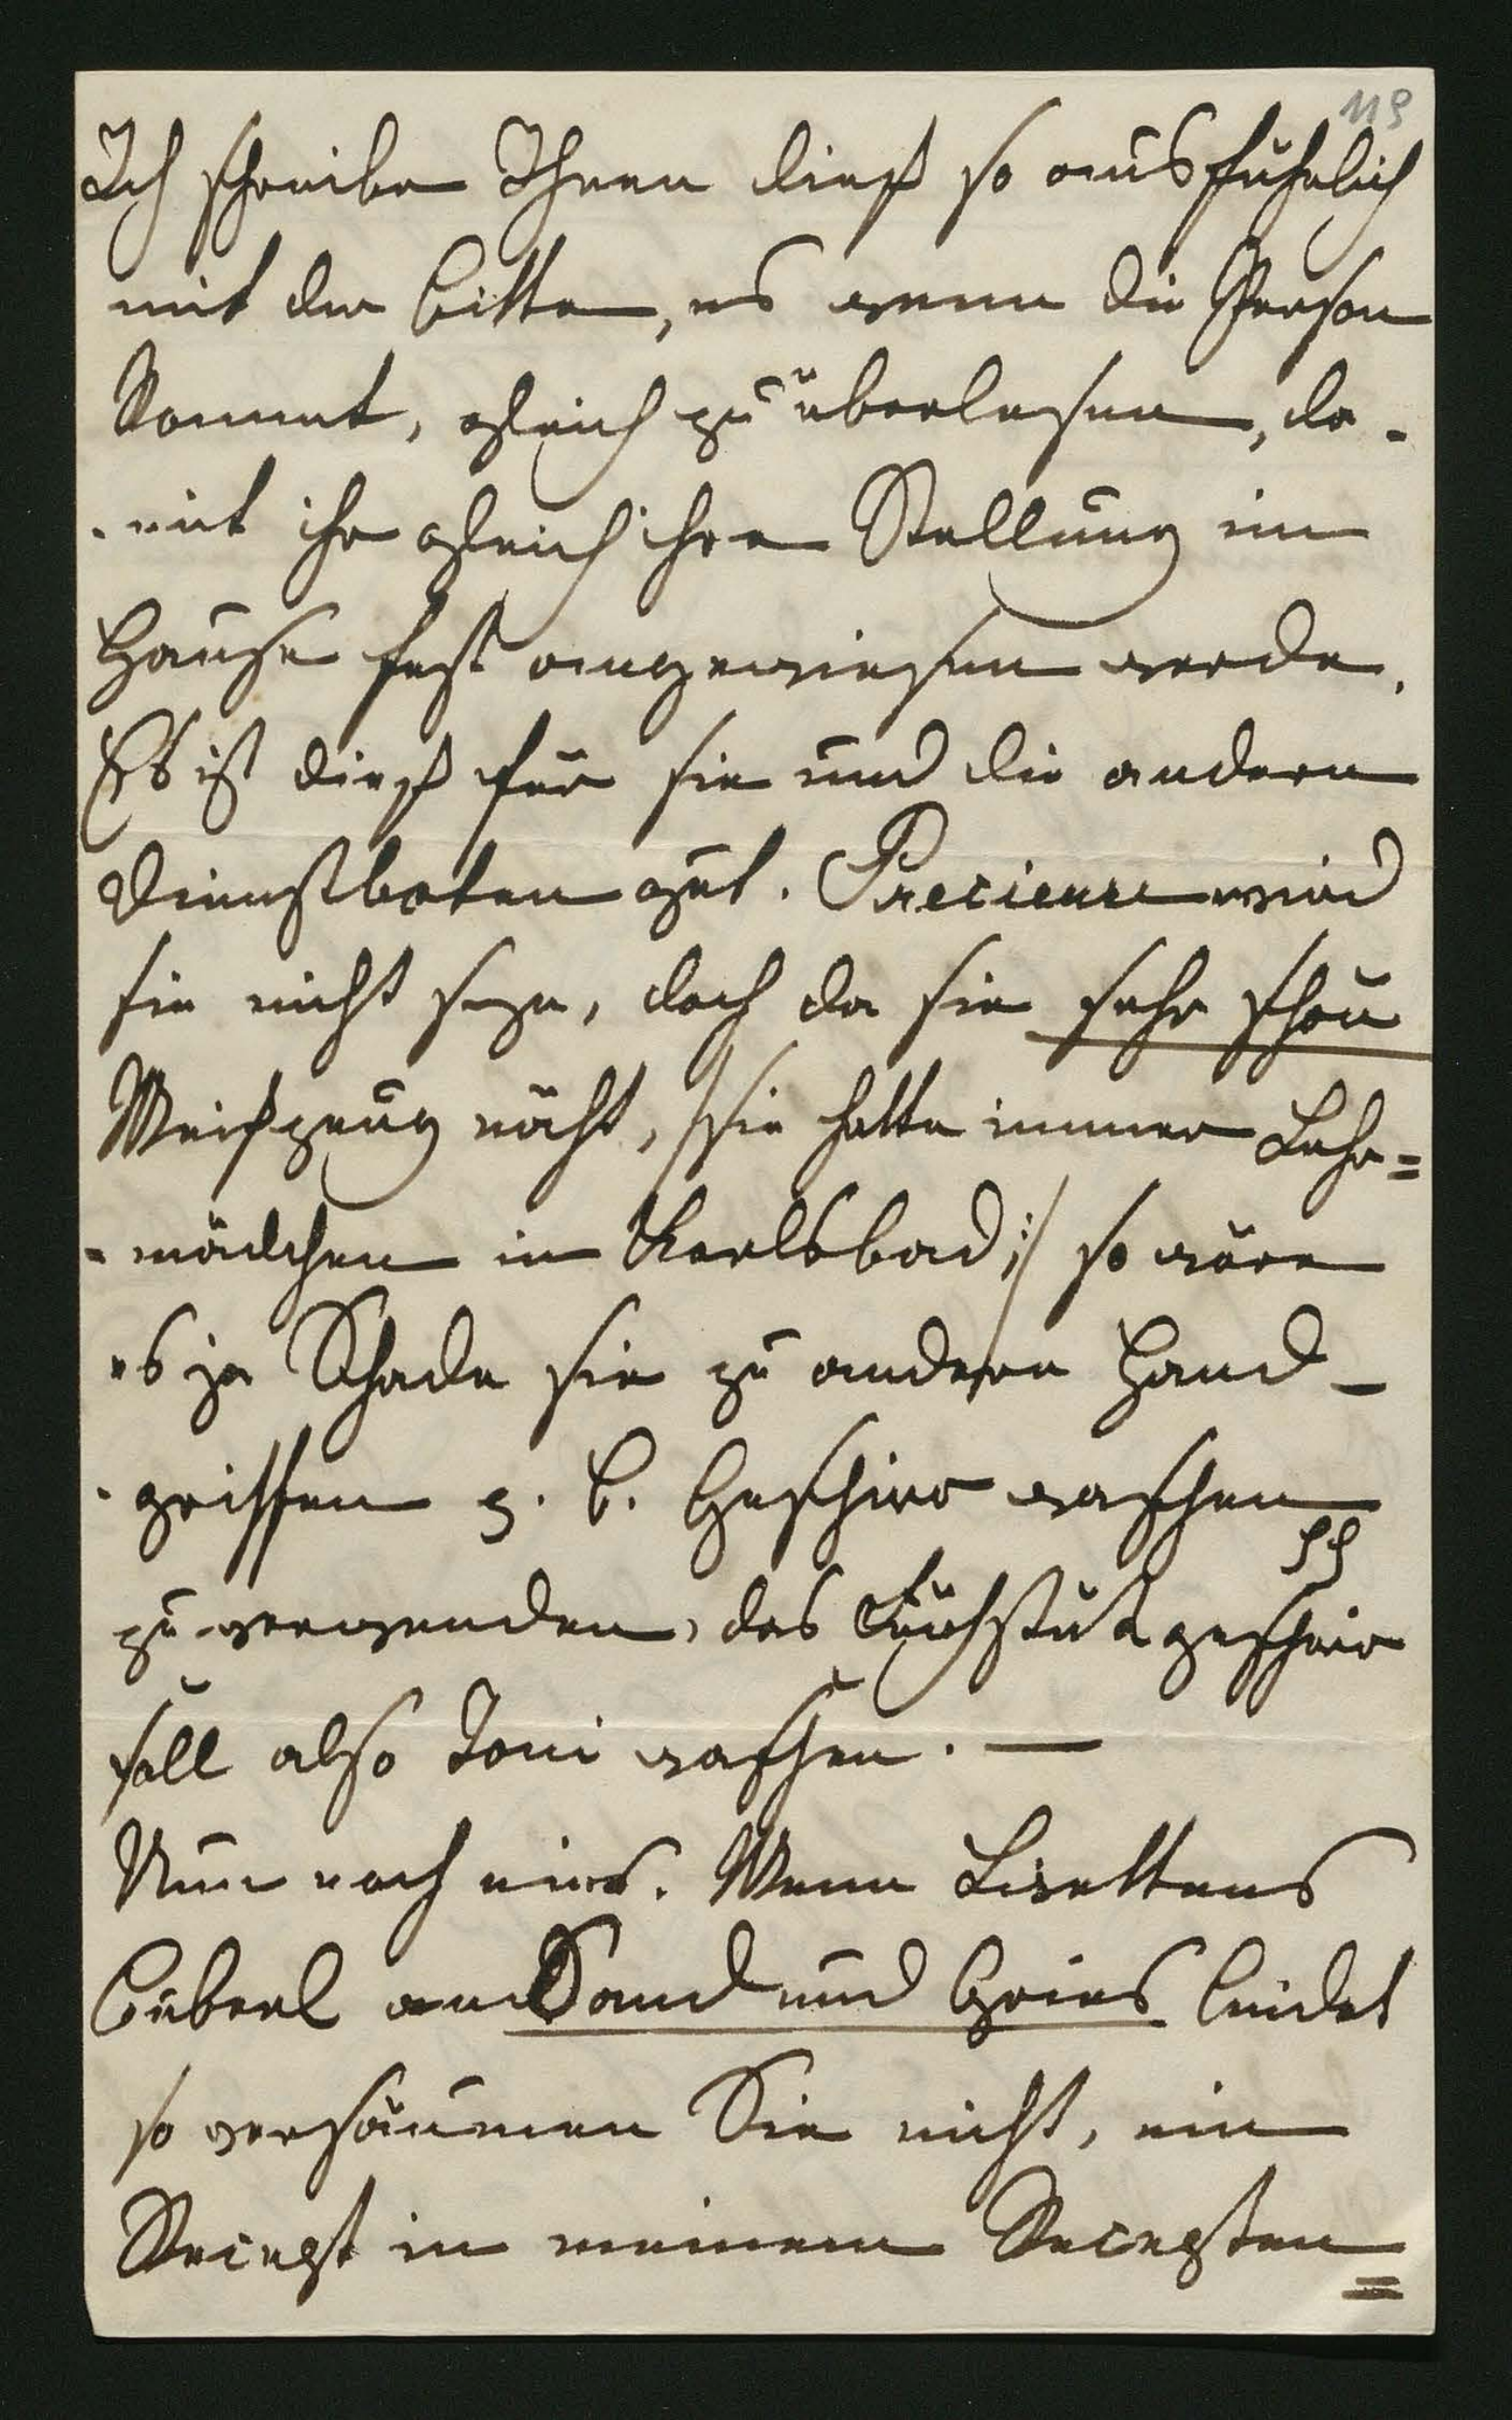 119
Ich schreibe Ihnen dieß so ausführlich
mit der Bitte, es wenn die Person
kommt, gleich zu überlesen, da-
-mit ihr gleich ihre Stellung im
Hause fest angewiesen werde.
Es ist dieß für sie und die andern
Dienstboten gut. Precieuse wird
sie nicht seyn, doch da sie sehr schön
Weißzeug näht, /:sie hatte immer Lehr=
=mädchen in Karlsbad:/ so wäre
es ja Schade sie zu andern Hand-
-griffen z. B. Geschirr waschen
zu verwenden, das Frühstükgeschirr
soll also Toni waschen. —
Nun noch eins. Wenn Lisettens
Buberl an Sand und Gries leidet
so versäumen Sie nicht, ein
Recept in meinem Recepten
=